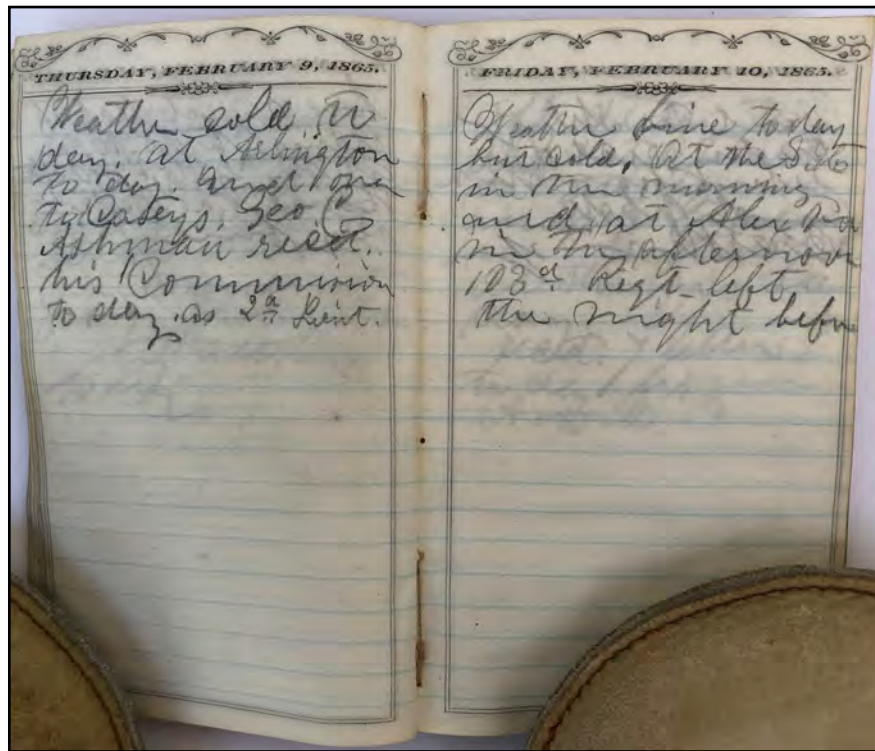 THURSDAY, FEBRUARY 9, 1865.
Weather cold to
day. at Arlington
to day. and over
to Caseys. Geo C
Ashman recd.
his Commission
to day. as 2d Lieut.
FRIDAY, FEBRUARY 10, 1865.
Weather fine to day
but cold. At the
in the morning
and at Alex
in the afternoon
Regt left
the night before